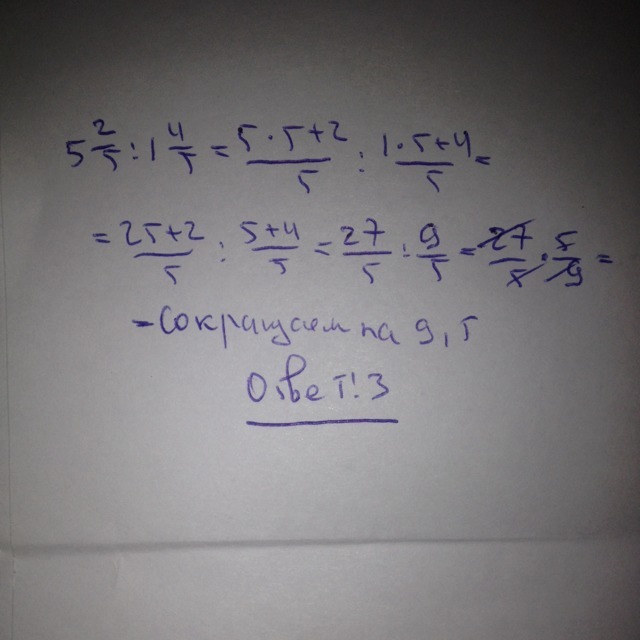 5 2/5 : 1 4/5 = 5·5+2/5 : 1·5+4/5 =
= 25+2/5 : 5+4/5 = 27/5 : 9/5 = 27/5 · 5/9 =
- Сокращаем на 9, 5
Ответ: 3